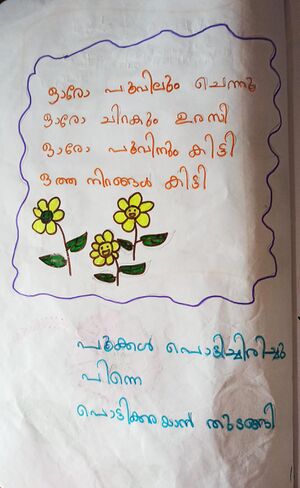 ഓരോ പൂവിലും ചെന്നു
ഓരോ ചിറകും ഉരസി
ഓരോ പൂവിനും കിട്ടി
ഒത്ത നിറങ്ങൾ കിട്ടി
പൂക്കൾ പൊട്ടിച്ചിരിച്ചു
പിന്നെ
പൊട്ടിക്കരയാൻ തുടങ്ങി